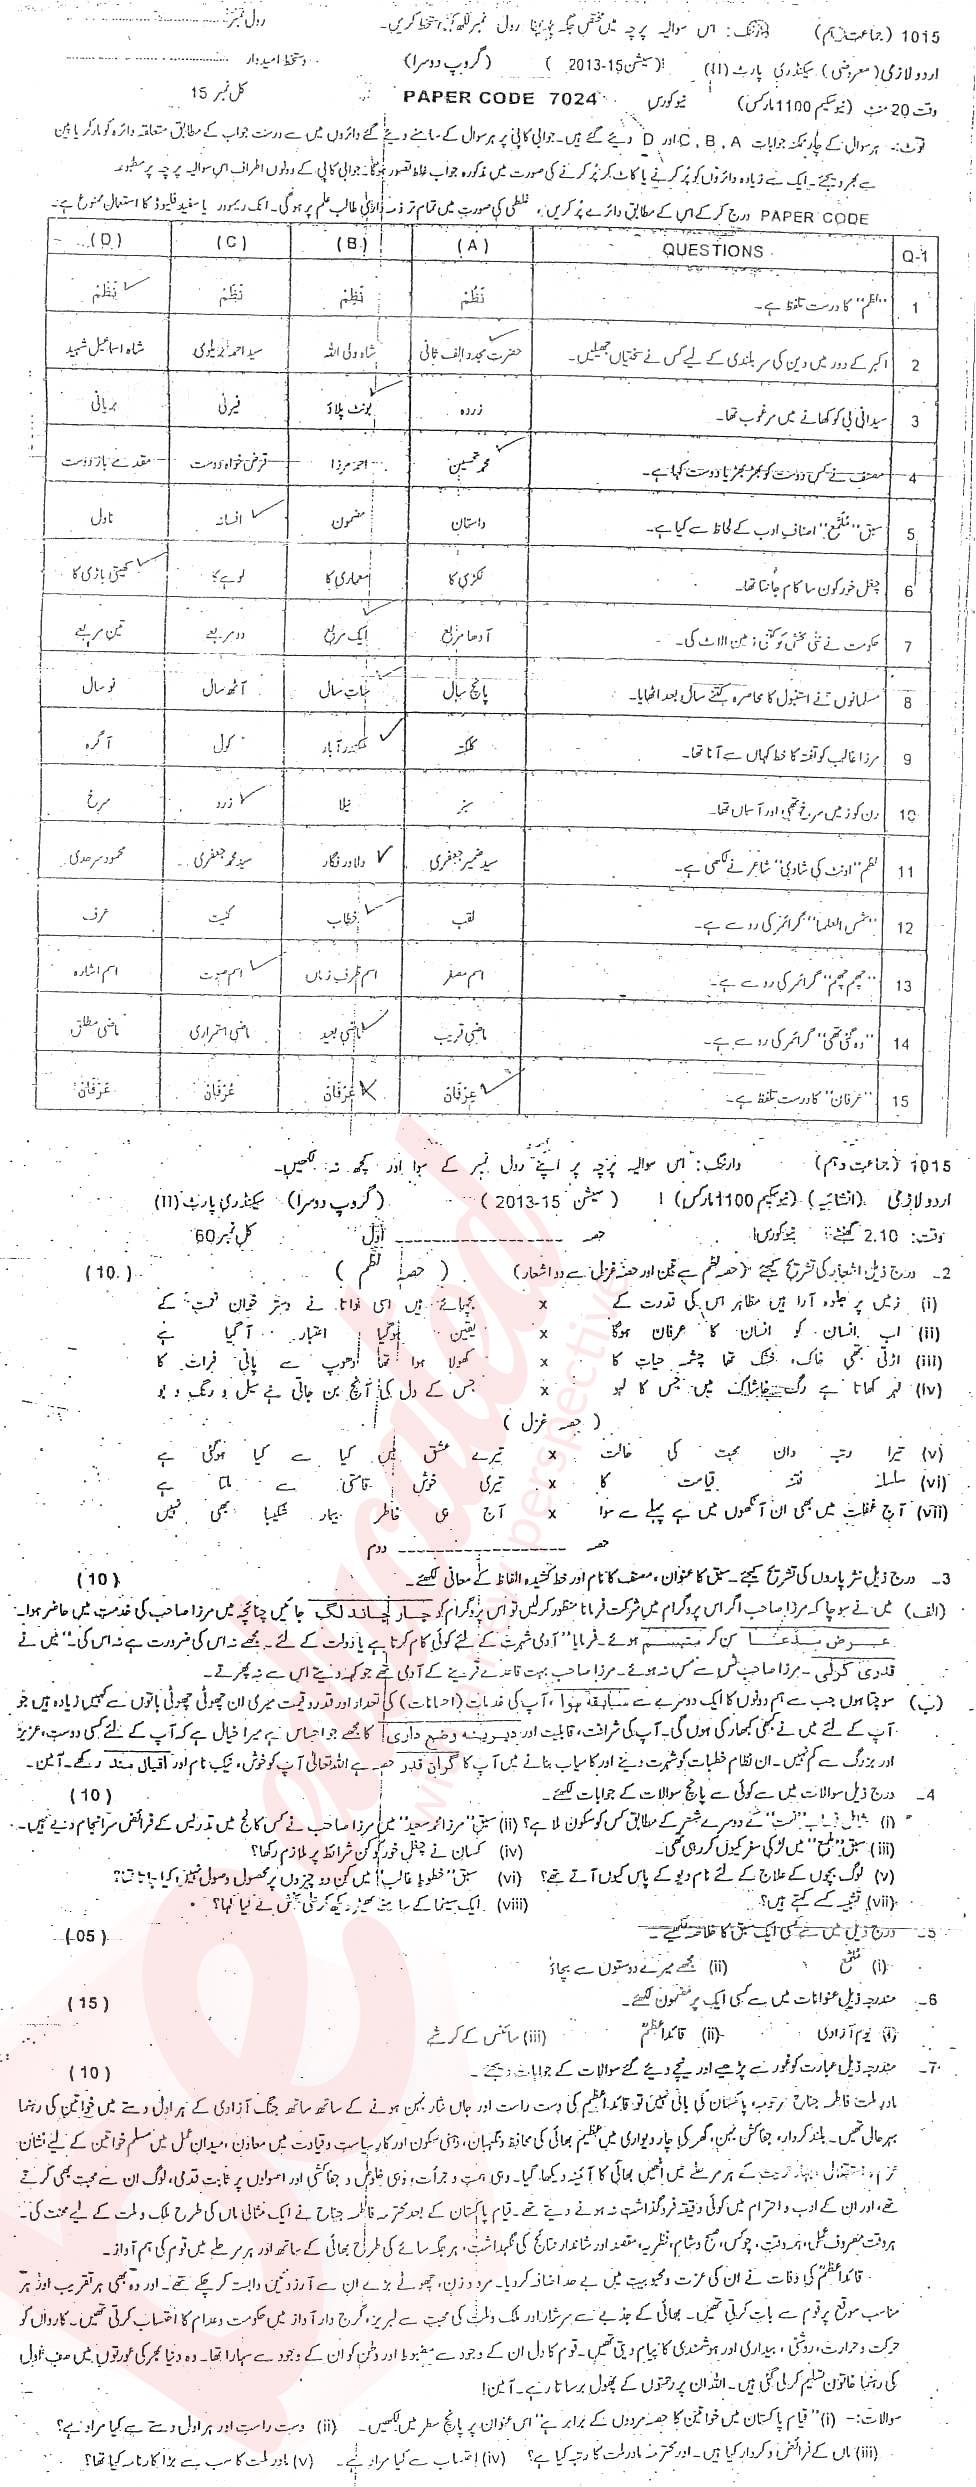 1015 (جماعت دہم) وارننگ: اس سوالیہ پرچہ میں مختص جگہ پر اپنا رول نمبر لکھ کر دستخط کریں۔ رول نمبر
اردو لازمی (معروضی) سیکنڈری پارٹ (II) (سیشن 15-2013) (گروپ دوسرا) دستخط امیدوار
وقت 20 منٹ (نیو سکیم 1100 مارکس) نیو کورس PAPER CODE 7024 کل نمبر 15
نوٹ:- ہر سوال کے چار ممکنہ جوابات A , B , C اور D دیئے گئے ہیں۔ جوابی کاپی پر ہر سوال کے سامنے دیئے گئے دائروں میں سے درست جواب کے مطابق متعلقہ دائرہ کو مارکر یا پین
سے بھر دیجئے۔ ایک سے زیادہ دائروں کو پُر کرنے یا کاٹ کر پُر کرنے کی صورت میں مذکورہ جواب غلط تصور ہوگا۔ جوابی کاپی کے دونوں اطراف اس سوالیہ پرچہ پر مطبوعہ
PAPER CODE درج کر کے اس کے مطابق دائرے پُر کریں، غلطی کی صورت میں تمام تر ذمہ داری طالب علم پر ہوگی۔ انک ریموور یا سفید فلیوڈ کا استعمال ممنوع ہے۔
Q-1 QUESTIONS (A) (B) (C) (D)
1 "نظم" کا درست تلفظ ہے۔ نَظَمْ نَظِمْ نَظُمْ نَظْمْ
2 اکبر کے دور میں دین کی سربلندی کے لیے کس نے سختیاں جھیلیں۔ حضرت مجدد الف ثانی شاہ ولی اللہ سید احمد بریلوی شاہ اسماعیل شہید
3 سیدانی بی کو کھانے میں مرغوب تھا۔ زردہ بونٹ پلاؤ فیرنی بریانی
4 مصنف نے کس دوست کو بھڑبھڑیا دوست کہا ہے۔ محمد تحسین احمد مرزا قرض خواہ دوست مقدمے باز دوست
5 سبق "ملمع" اصنافِ ادب کے لحاظ سے کیا ہے۔ داستان مضمون افسانہ ناول
6 چغل خور کون سا کام جانتا تھا۔ لکڑی کا معماری کا لوہے کا کھیتی باڑی کا
7 حکومت نے نبی بخش کو کتنی زمین الاٹ کی۔ آدھا مربع ایک مربع دو مربعے تین مربعے
8 مسلمانوں نے استنبول کا محاصرہ کتنے سال بعد اٹھایا۔ پانچ سال سات سال آٹھ سال نو سال
9 مرزا غالب کو تفتہ کا خط کہاں سے آنا تھا۔ کلکتہ سکندر آباد کول آگرہ
10 رن کو زمیں سرخ تھی اور آسماں تھا۔ سبز نیلا زرد سرخ
11 نظم "اونٹ کی شادی" شاعر نے لکھی ہے۔ سید ضمیر جعفری دلاور فگار سید محمد جعفری محمود سرحدی
12 "شمس العلما" گرائمر کی رو سے ہے۔ لقب خطاب کنیت عرف
13 "چھم چھم" گرائمر کی رو سے ہے۔ اسم مصغر اسم ظرف زماں اسم صوت اسم اشارہ
14 "وہ گئی تھی" گرائمر کی رو سے ہے۔ ماضی قریب ماضی بعید ماضی استمراری ماضی مطلق
15 "عرفان" کا درست تلفظ ہے۔ عِرْفَانْ عِرَفَانْ عُرْفَانْ عَرْفَانْ
1015 (جماعت دہم) وارننگ: اس سوالیہ پرچہ پر اپنے رول نمبر کے سوا اور کچھ نہ لکھیں۔
اردو لازمی (انشائیہ) (نیو سکیم 1100 مارکس) (سیشن 15-2013) (گروپ دوسرا) سیکنڈری پارٹ (II)
وقت: 2.10 گھنٹے نیو کورس حصہ اوّل کل نمبر 60
2۔ درج ذیل اشعار کی تشریح کیجئے (حصہ نظم سے تین اور حصہ غزل سے دو اشعار) (حصہ نظم) (10)
(i) زمیں پر جلوہ آرا ہیں مظاہر اس کی قدرت کے x بچھائے ہیں اسی داتا نے دسترخوان نعمت کے
(ii) اب انسان کو انسان کا عرفان ہوگا x یقین ہوگیا اعتبار آگیا ہے
(iii) اڑتی تھی خاک، خشک تھا چشمہ حیات کا x کھولا ہوا تھا دھوپ سے پانی فرات کا
(iv) لہر کھاتا ہے رگِ خاشاک میں جس کا لہو x جس کے دل کی آنچ بن جاتی ہے سیلِ رنگ و بو
(حصہ غزل)
(v) تیرا رتبہ دان محبت کی حالت x تیرے عشق میں کیا سے کیا ہوگئی ہے
(vi) سلسلہ فتنہ قیامت کا x تیری خوش قامتی سے ملتا ہے
(vii) آج غفلت میں بھی ان آنکھوں میں ہے پہلے سے سوا x آج ہی خاطر بیمار شکیبا بھی نہیں
حصہ دوم
3۔ درج ذیل نثر پاروں کی تشریح کیجئے۔ سبق کا عنوان، مصنف کا نام اور خط کشیدہ الفاظ کے معانی لکھئے۔ (10)
(الف) میں نے سوچا کہ مرزا صاحب اگر اس پروگرام میں شرکت فرمانا منظور کرلیں تو اس پروگرام کو چار چاند لگ جائیں چنانچہ میں مرزا صاحب کی خدمت میں حاضر ہوا۔
عرض مدعا سن کر متبسم ہوئے۔ فرمایا "آدمی شہرت کے لئے کوئی کام کرتا ہے یا دولت کے لئے۔ مجھے نہ اس کی ضرورت ہے نہ اس کی۔" میں نے
قدری کرلی۔ مرزا صاحب ٹس سے مس نہ ہوئے۔ مرزا صاحب بہت قاعدے قرینے کے آدمی تھے جو کہہ دیتے اس سے نہ پھرتے۔
(ب) سوچتا ہوں جب سے ہم دونوں کا ایک دوسرے سے سابقہ ہوا، آپ کی خدمات (احسانات) کی تعداد اور قدر و قیمت میری ان چھوٹی چھوٹی باتوں سے کہیں زیادہ ہیں جو
آپ کے لئے میں نے کبھی کبھار کی ہوں گی۔ آپ کی شرافت، قابلیت اور دیرینہ وضع داری کا مجھے جو احساس ہے میرا خیال ہے کہ آپ کے لئے کسی دوست، عزیز
اور بزرگ سے کم نہیں۔ ان نظام خطبات کو شہرت دینے اور کامیاب بنانے میں آپ کا گراں قدر حصہ ہے اللہ تعالیٰ آپ کو خوش، نیک نام اور اقبال مند رکھے۔ آمین۔
4۔ درج ذیل سوالات میں سے کوئی سے پانچ سوالات کے جوابات لکھئے۔ (10)
(i) شامل نصاب "نعت" کے دوسرے شعر کے مطابق کس کو سکون ملا ہے؟ (ii) سبق "مرزا محمد سعید" میں مرزا صاحب نے کس کالج میں تدریس کے فرائض سرانجام دیئے ہیں۔
(iii) سبق "ملمع" میں لڑکی سفر کیوں کر رہی تھی۔ (iv) کسان نے چغل خور کو کن شرائط پر ملازم رکھا؟
(v) لوگ بچوں کے علاج کے لئے نام دیو کے پاس کیوں آتے تھے؟ (vi) سبق "خطوط غالب" میں کن دو چیزوں پر محصول وصول نہیں کیا جاتا تھا؟
(vii) تشبیہ کسے کہتے ہیں؟ (viii) ایک سینما کے سامنے بھیڑ دیکھ کر نبی بخش نے کیا کہا؟
5۔ درج ذیل میں سے کسی ایک سبق کا خلاصہ لکھیے۔ (05)
(i) ملمع (ii) مجھے میرے دوستوں سے بچاؤ
6۔ مندرجہ ذیل عنوانات میں سے کسی ایک پر مضمون لکھئے۔ (15)
(i) یوم آزادی (ii) قائد اعظمؒ (iii) سائنس کے کرشمے
7۔ مندرجہ ذیل عبارت کو غور سے پڑھیے اور نیچے دیئے گئے سوالات کے جوابات دیجئے۔ (10)
مادر ملت فاطمہ جناح مرحومہ، پاکستان کی بانی نہیں تو قائد اعظم کی دست راست اور جاں نثار بہن ہونے کے ساتھ ساتھ جنگ آزادی کے ہراول دستے میں خواتین کی رہنما
بہرحال تھیں۔ بلند کردار، جفاکش بہن، گھر کی چار دیواری میں عظیم بھائی کی محافظ و نگہبان، ذہنی سکون اور کار سیاست و قیادت میں معاون، میدان عمل میں مسلم خواتین کے لیے نشان
عزم و استقلال، جہاد حریت کے ہر مرحلے میں انھیں بھائی کا آئینہ دیکھا گیا۔ وہی ہمت و جرأت، وہی خلوص و جفاکشی اور اصولوں پر ثابت قدمی، لوگ ان سے محبت بھی کرتے
تھے، اور ان کے ادب و احترام میں کوئی دقیقہ فروگذاشت نہ ہونے دیتے تھے۔ قیام پاکستان کے بعد محترمہ فاطمہ جناح نے ایک مثالی ماں کی طرح ملک و ملت کے لیے محنت کی۔
ہر وقت مصروف عمل، ہمہ وقت، چوکس، صبح و شام، نظریہ، مقصد اور شاندار نتائج کی نگہداشت، ہر جگہ سائے کی طرح بھائی کے ساتھ اور ہر مرحلے میں قوم کی ہم آواز۔
قائد اعظمؒ کی وفات نے ان کی عزت و محبوبیت میں بے حد اضافہ کر دیا۔ مرد و زن، چھوٹے بڑے ان سے آرزوئیں وابستہ کر چکے تھے۔ اور وہ بھی ہر تقریب اور ہر
مناسب موقع پر قوم سے بات کرتی تھیں۔ بھائی کے جذبے سے سرشار اور ملک و ملت کی محبت سے لبریز، گرج دار آواز میں حکومت و عوام کا احتساب کرتی تھیں۔ کارواں کو
حرکت و حرارت، روشنی، بیداری اور ہوشمندی کا پیام دیتی تھیں۔ قوم کا دل ان کے وجود سے مضبوط اور وطن کو ان کے وجود سے سہارا تھا۔ وہ دنیا بھر کی عورتوں میں صف اول
کی رہنما خاتون تسلیم کر لی گئی ہیں۔ اللہ ان پر رحمتوں کے پھول برساتا رہے۔ آمین!
سوالات:- (i) "قیام پاکستان میں خواتین کا حصہ مردوں کے برابر ہے" اس عنوان پر پانچ سطریں لکھیں۔ (ii) دست راست اور ہراول دستے سے کیا مراد ہے؟
(iii) ماں کے فرائض و کردار کیا ہیں۔ اور محترمہ مادر ملت کا رتبہ کیا ہے؟ (iv) احتساب سے کیا مراد ہے۔ (v) مادر ملت کا سب سے بڑا کارنامہ کیا تھا؟